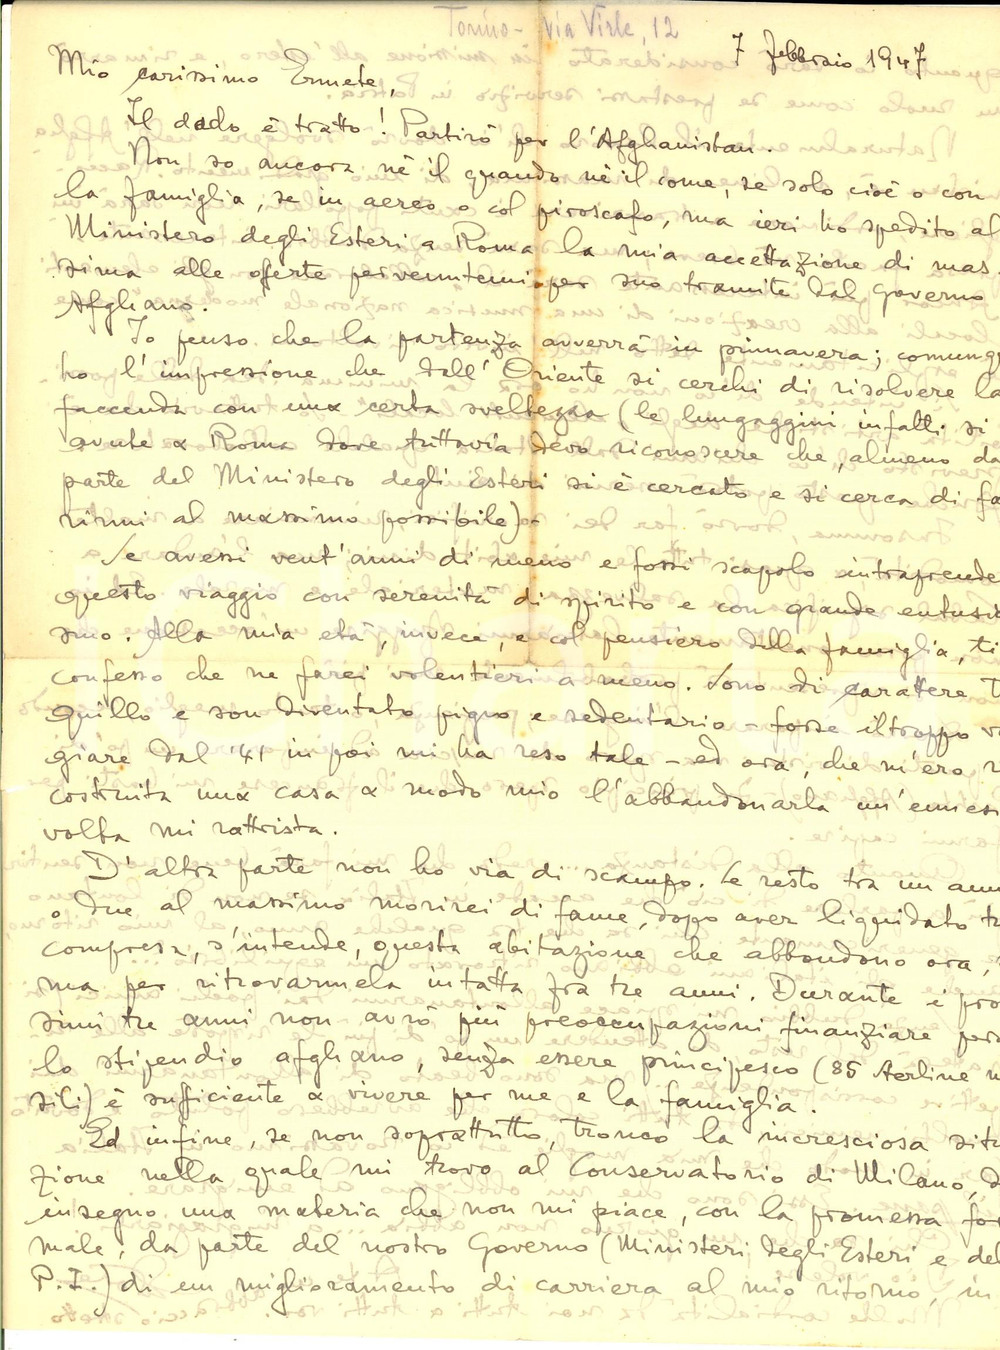 Torino - Via Virle, 12
7 febbraio 1947
Mio carissimo Ermete,
Il dado è tratto! Partirò per l'Afghanistan.
Non so ancora nè il quando nè il come, se solo cioè o con
la famiglia, se in aereo o col piroscafo, ma ieri ho spedito al
Ministero degli Esteri a Roma la mia accettazione di mas-
sima alle offerte pervenutemi per suo tramite dal Governo
Afghano.
Io penso che la partenza avverrà in primavera; comunqu
ho l'impressione che dall'Oriente si cerchi di risolvere la
faccenda con una certa sveltezza (le lungaggini infatti si
avute a Roma dove tuttavia devo riconoscere che, almeno da
parte del Ministero degli Esteri si è cercato e si cerca di fa
rirmi al massimo possibile).
Se avessi vent'anni di meno e fossi scapolo intraprende
questo viaggio con serenità di spirito e con grande entusia
smo. Alla mia età, invece, e col pensiero della famiglia, ti
confesso che ne farei volentieri a meno. Sono di carattere t
quillo e son diventato pigro e sedentario - forse il troppo v
giare dal '41 in poi mi ha reso tale - ed ora, che m'ero r
costruita una casa a modo mio l'abbandonarla un'ennesi
volta mi rattrista.
D'altra parte non ho via di scampo. Se resto tra un ann
o due al massimo morirei di fame, dopo aver liquidato t
compresa, s'intende, questa abitazione che abbandono ora,
ma per ritrovarmela intatta fra tre anni. Durante i pro
simi tre anni non avrò più preoccupazioni finanziare per
lo stipendio afghano, senza essere principesco (85 sterline m
sili) è sufficiente a vivere per me e la famiglia.
Ed infine, se non soprattutto, tronco la incresciosa situ
zione nella quale mi trovo al Conservatorio di Milano, d
insegno una materia che non mi piace, con la promessa for
male, da parte del nostro Governo (Ministeri degli Esteri e del
P.I.) di un miglioramento di carriera al mio ritorno, in